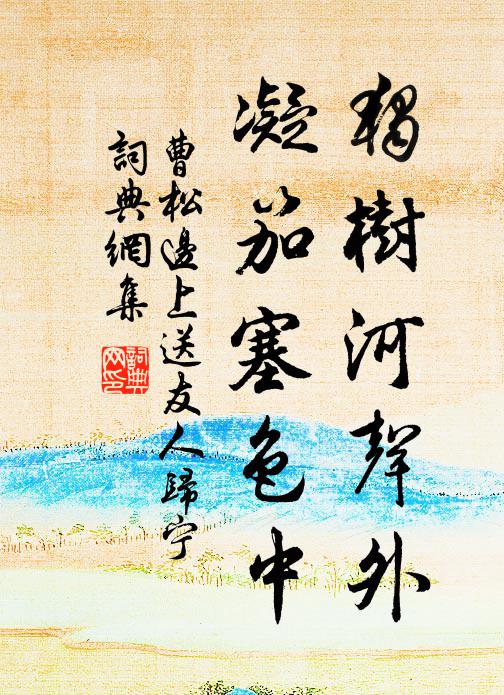 獨樹河聲外
凝笳塞色中
曹松邊上送友人歸宁
詞典網集
詞典網印